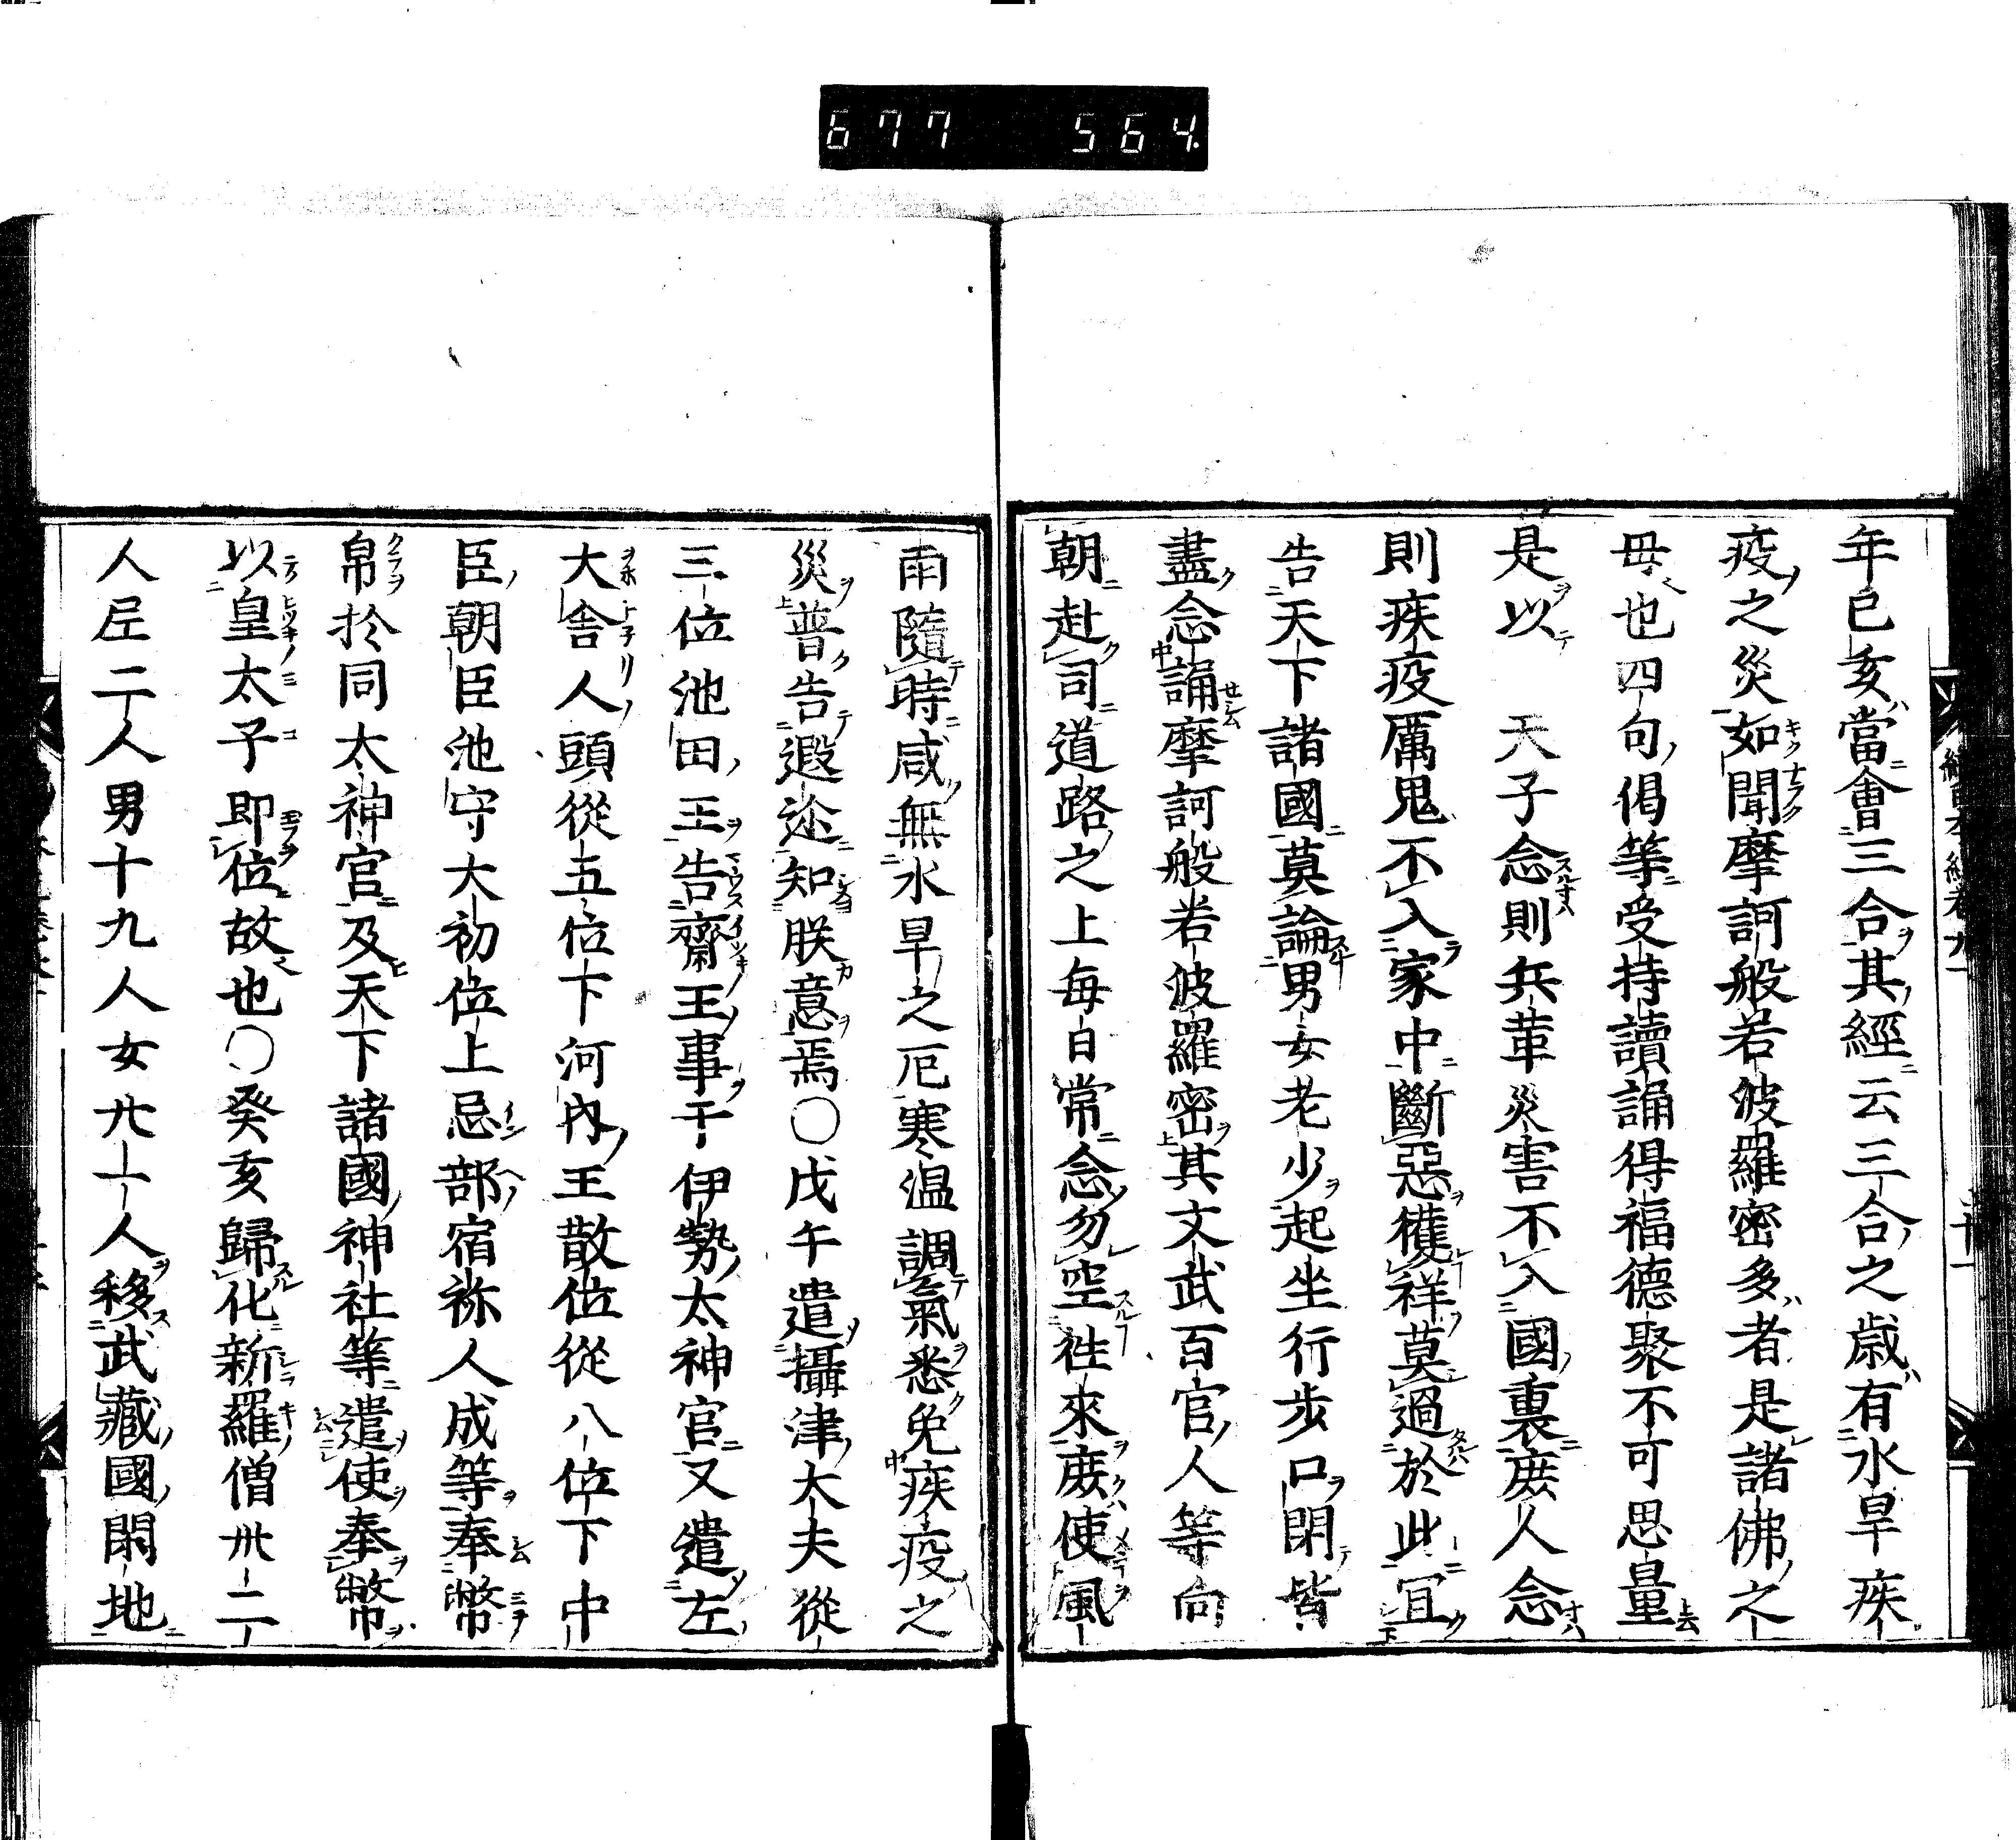 677 564.
年已亥當會三合其經云三合之歳有水旱疾
疫之災如聞摩訶般若波羅密多者是諸佛之
毋也四句偈等受持讀誦得福德聚不可思量
是以 天子念則兵革災害不入國裏庶人念
則疾疫厲鬼不入家中斷惡獲祥莫過於此冝
告天下諸國莫論男女老少起坐行步口閇皆
盡念誦摩訶般若波羅密其文武百官人等向
朝赴司道路之上每日常念勿空往來庶使風
雨隨時咸無水旱之厄寒温調氣悉免疾疫之
災普告遐迩知朕意焉〇戊午遣攝津大夫從
三位池田王告齋王事于伊勢太神宮又遣左
大舍人頭從五位下河内王散位從八位下中
臣朝臣池守大初位上忌部宿祢人成等奉幣
帛於同太神宮及天下諸國神社等遣使奉幣
以皇太子即位故也〇癸亥歸化新羅僧卅二
人尼二人男十九人女廿一人移武藏國閑地